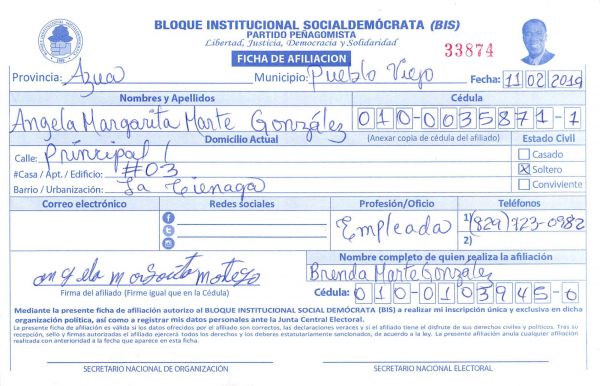 BLOQUE INSTITUCIONAL SOCIALDEMÓCRATA (BIS)
PARTIDO PEÑAGOMISTA
Libertad, Justicia, Democracia y Solidaridad
FICHA DE AFILIACION
33874
Provincia: Azua Municipio: Pueblo Viejo Fecha: 11 02 2019
Nombres y Apellidos Cédula
Angela Margarita Marte González 010-0035871-1
Domicilio Actual (Anexar copia de cédula del afiliado) Estado Civil
Calle: Principal Casado
#Casa / Apt. / Edificio: #03 X Soltero
Barrio / Urbanización: La Cienaga Conviviente
Correo electrónico Redes sociales Profesión/Oficio Teléfonos
Empleada 1) (829) 723-0982
2)
Nombre completo de quien realiza la afiliación
angela Margarita Brenda Marte Gonzalez
Firma del afiliado (Firme igual que en la Cédula) Cédula: 010-0103945-0
Mediante la presente ficha de afiliación autorizo al BLOQUE INSTITUCIONAL SOCIAL DEMÓCRATA (BIS) a realizar mi inscripción única y exclusiva en dicha
organización política, así como a registrar mis datos personales ante la Junta Central Electoral.
La presente ficha de afiliación es válida si los datos ofrecidos por el afiliado son correctos, las declaraciones veraces y si el afiliado tiene el disfrute de sus derechos civiles y políticos. Tras su
recepción, sello y firmas autorizadas el afiliado ejercerá todos los derechos y los deberes estatutariamente sancionados, de acuerdo a la ley. La presente afiliación anula cualquier afiliación
realizada con anterioridad a la fecha que aparece en esta ficha.
SECRETARIO NACIONAL DE ORGANIZACIÓN SECRETARIO NACIONAL ELECTORAL